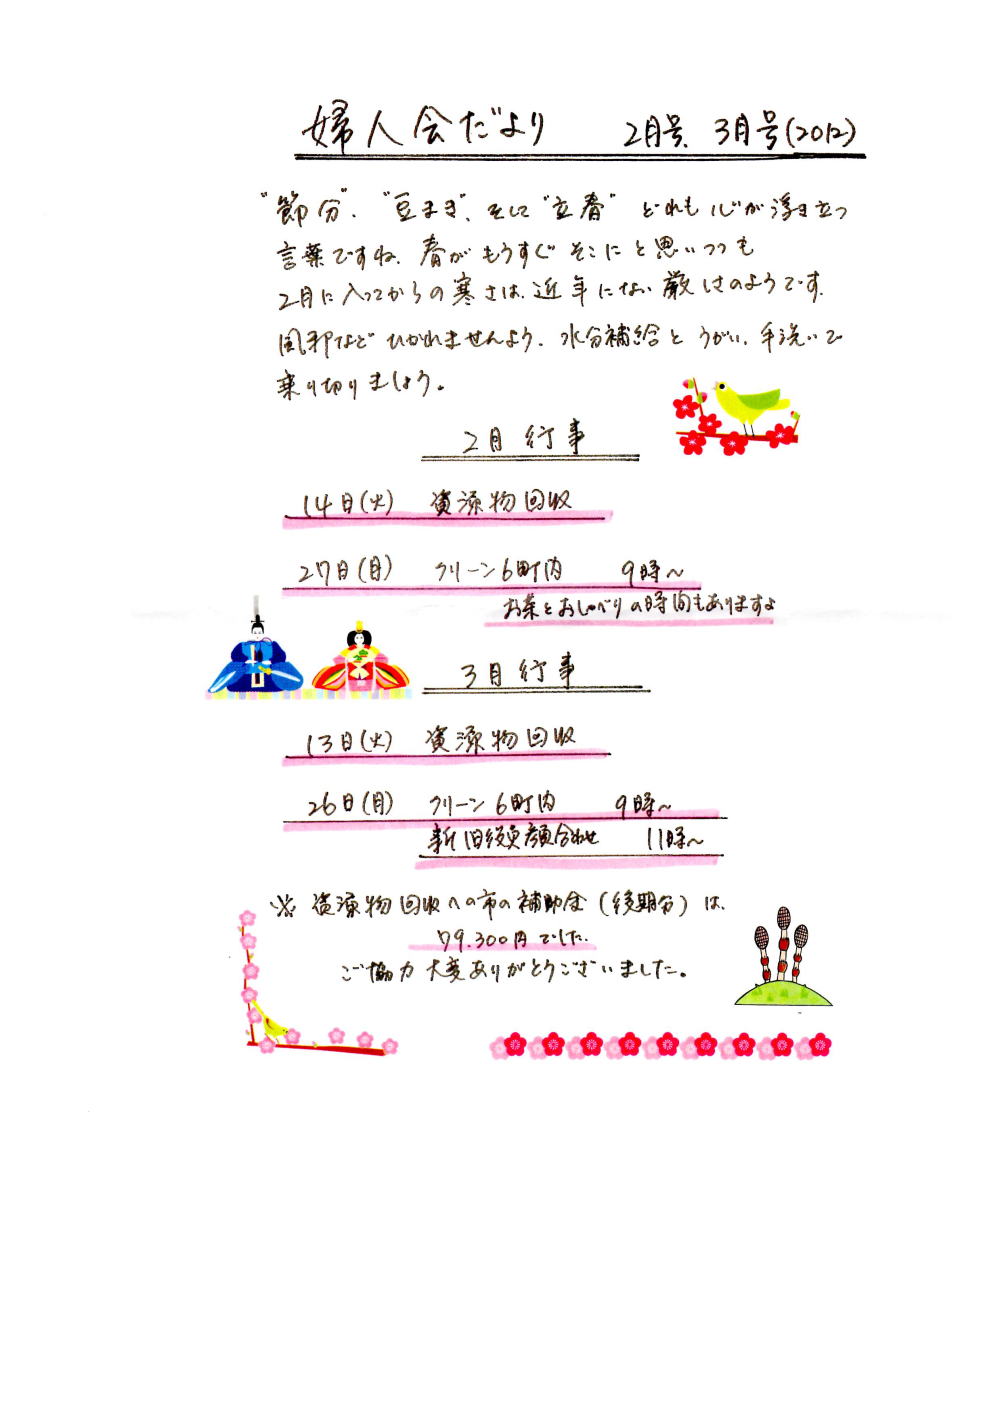 婦人会だより 2月号、3月号(2012)
"節分"、"豆まき"、そして"立春" どれも心が浮き立つ
言葉ですね、春がもうすぐそこにと思いつつも
2月に入ってからの寒さは、近年にない厳しさのようです。
風邪などひかれませんよう、水分補給とうがい、手洗いで
乗り切りましょう。
2月行事
14日(火) 資源物回収
27日(月) クリーン6町内 9時～
お茶とおしゃべりの時間もありますよ
3月行事
13日(火) 資源物回収
26日(月) クリーン6町内 9時～
新旧役員顔合わせ 11時～
※ 資源物回収への市の補助金(後期分)は、
79.300円でした。
ご協力大変ありがとうございました。